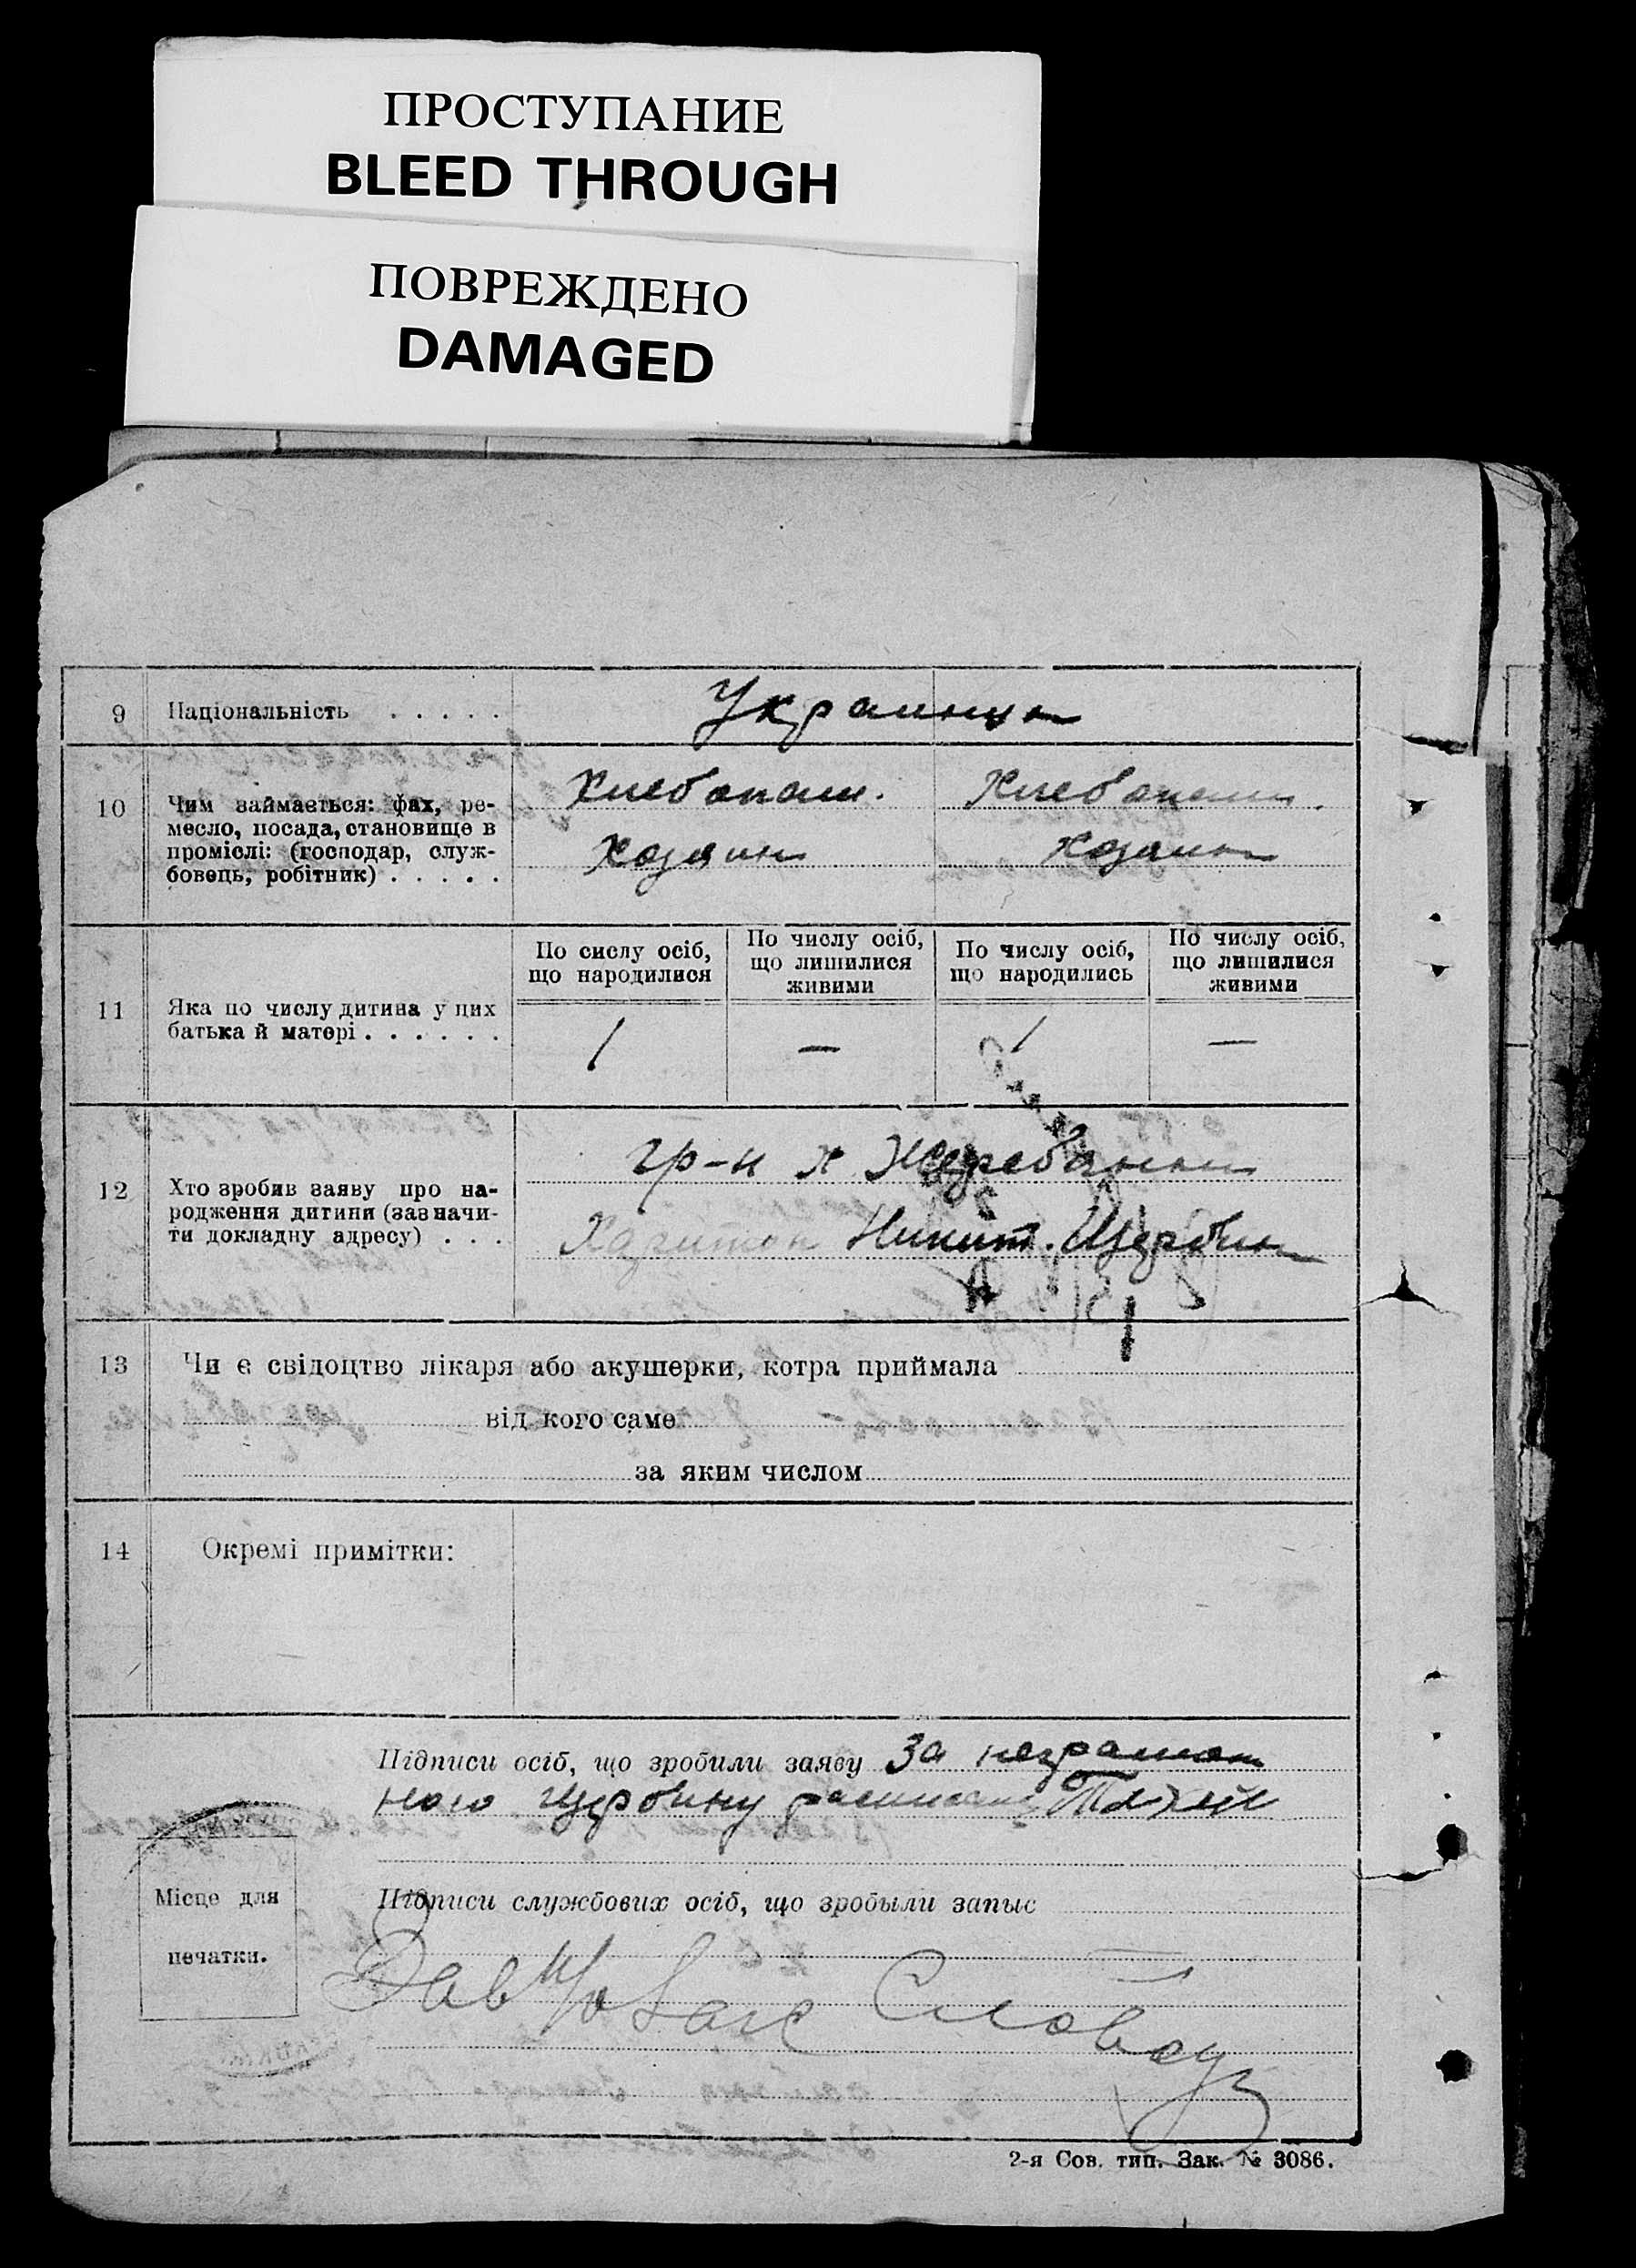 ПРОСТУПАНИЕ
BLEED THROUGH
ПОВРЕЖДЕНО
DAMAGED
9 Національність . . . . .
Украинцы
10 Чим займається: фах, ре-
месло, посада, становище в
проміслі: (господар, служ-
бовець, робітник) . . . . .
Хлебопаш. Хлебопаш.
Хозяин Хозяин
11 Яка по числу дитина у цих
батька й матері . . . . . .
По сислу осіб,
що народилися
По числу осіб,
що лишилися
живими
По числу осіб,
що народились
По числу осіб,
що лишилися
живими
1 — 1 —
12 Хто зробив заяву про на-
родження дитини (зазначи-
ти докладну адресу) . . .
гр-н х
Харитон Никит. Щербин
13 Чи є свідоцтво лікаря або акушерки, котра приймала
від кого саме
за яким числом
14 Окремі примітки:
Підписи осіб, що зробили заяву За неграмот
ного Щербину
Місце для
печатки.
Підписи службових осіб, що зробыли запыс
Зав
2-я Сов. тип. Зак. № 3086.